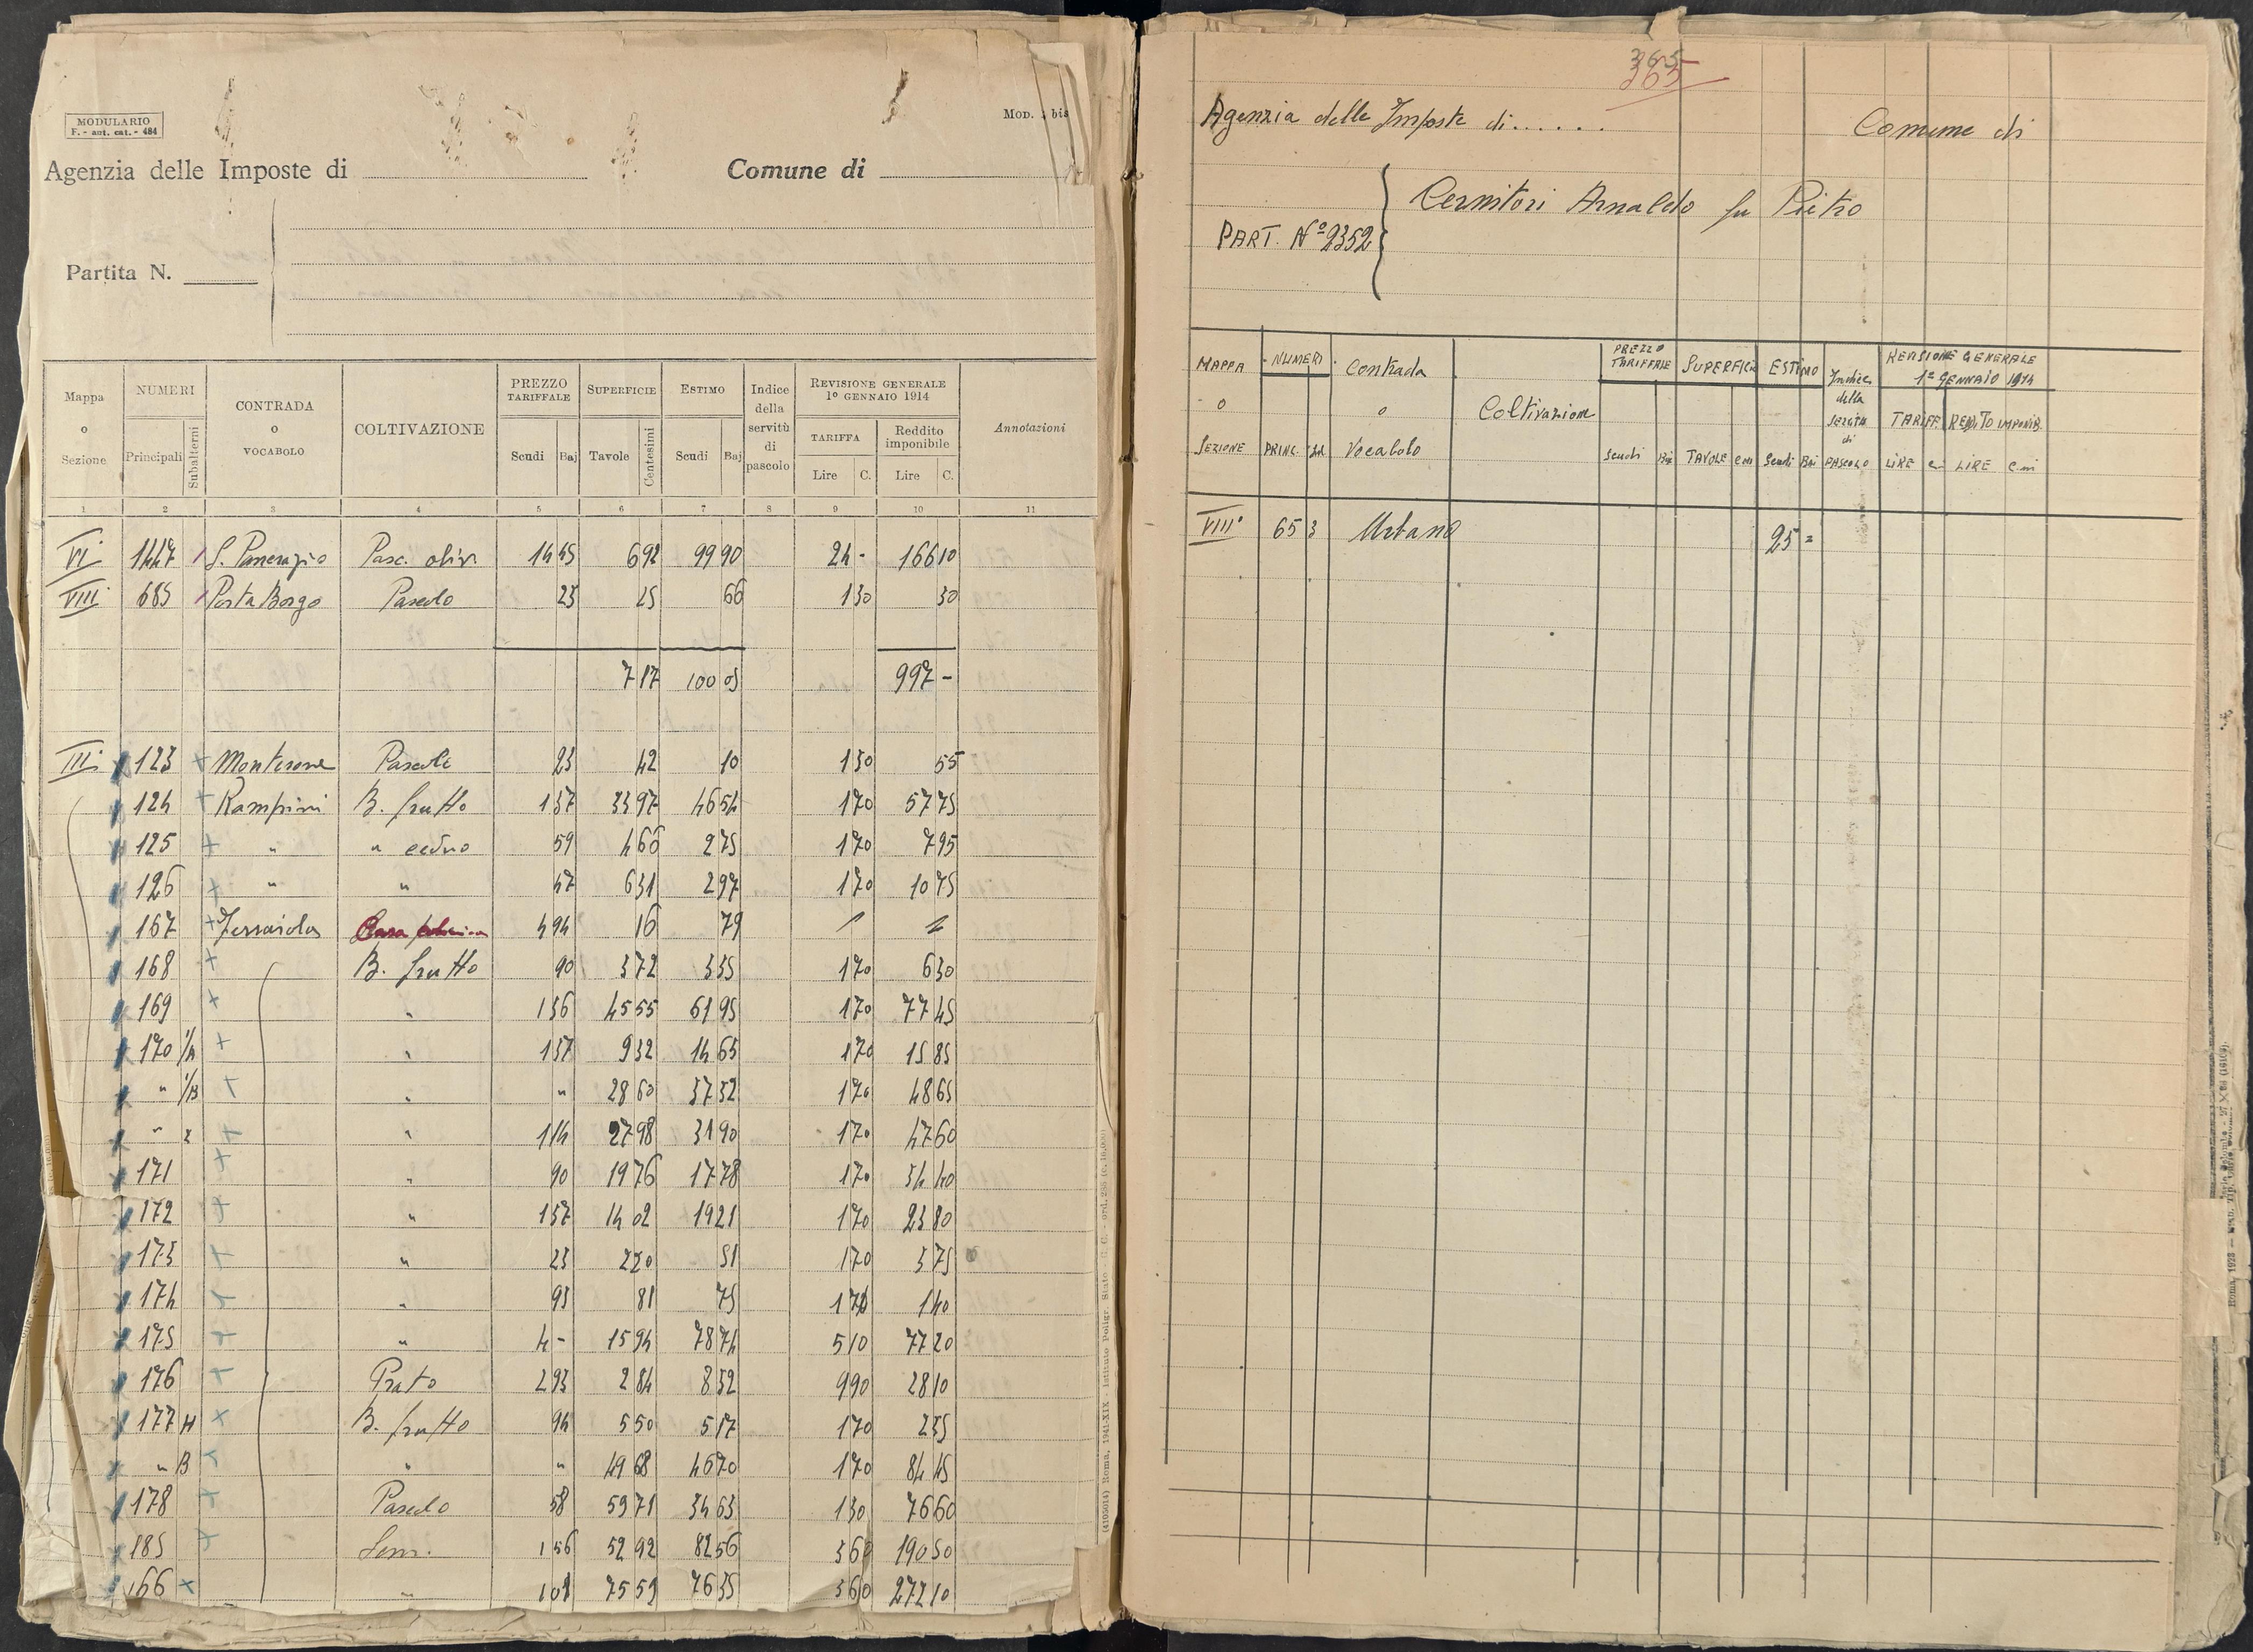 MODULARIO
F. - aut. cat. - 484
Mod. bis
Agenzia delle Imposte di Comune di
Partita N.
Mappa o Sezione NUMERI Principali Subalterni CONTRADA O VOCABOLO COLTIVAZIONE PREZZO TARIFFALE Scudi Baj SUPERFICIE Tavole Centesimi ESTIMO Scudi Baj Indice della servitù di pascolo REVISIONE GENERALE 1º GENNAIO 1914 TARIFFA Lire C. Reddito imponibile Lire C. Annotazioni
1 2 3 4 5 6 7 8 9 10 11
VI 1447 S. Pancrazio Pasc. oliv. 14 45 6 92 99 90 24 - 166 10
VIII 685 Porta Borgo Pascolo 23 25 66 1 30 30
7 17 100 05 997 -
III 123 Pascolo 23 42 10 1 30 55
124 Rampini B. frutto 1 37 33 97 46 54 1 70 57 75
125 " " ceduo 59 4 66 2 75 1 70 7 95
126 " " 47 6 31 2 97 1 70 10 75
167 4 94 16 79
168 B. frutto 90 3 72 3 35 1 70 6 30
169 " 1 36 45 55 61 95 1 70 77 45
170 1/A " 1 57 9 32 14 63 1 70 15 85
" 1/B " " 28 60 37 32 1 70 48 65
" 2 " 1 14 27 98 31 90 1 70 47 60
171 " 90 19 76 17 78 1 70 34 40
172 " 1 37 14 02 19 21 1 70 23 80
173 " 23 2 20 51 1 70 3 75
174 " 93 81 75 1 70 1 40
175 " 4 - 15 94 78 74 5 10 77 20
176 Prato 2 93 2 84 8 32 9 90 28 10
177 A B. frutto 94 5 50 5 17 1 70 2 35
" B " " 49 68 46 70 1 70 84 45
178 Pascolo 58 59 71 34 63 1 30 76 60
185 Sem. 1 56 52 92 82 56 3 60 190 50
166 " 1 01 75 59 76 35 3 60 272 10
365
365
Agenzia delle Imposte di...... Comune di
PART. Nº 2352 Cernitori Arnaldo fu Pietro
MAPPA o SEZIONE NUMERI PRINC. Sub. Contrada o Vocabolo Coltivazione PREZZO TARIFFALE Scudi Bai SUPERFICIE TAVOLE Cen ESTIMO Scudi Bai Indice della SERVITÙ di PASCOLO REVISIONE GENERALE 1º GENNAIO 1914 TARIFF. LIRE C. REDDITO IMPONIB. LIRE C.mi
VIII 65 3 Urbano 25 =